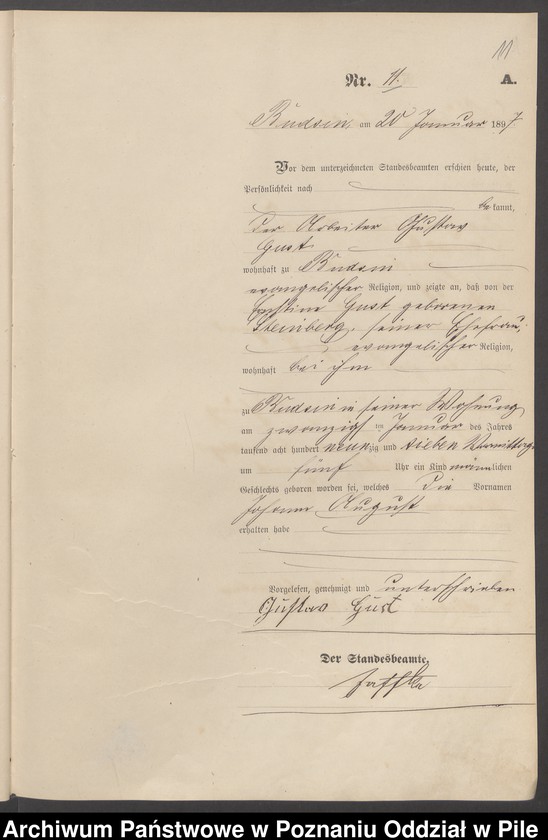 11
Nr. 11.
A.
Budsin, am 20 Januar 1897
Vor dem unterzeichneten Standesbeamten erschien heute, der
Persönlichkeit nach
bekannt,
der Arbeiter Gustav
Gust
wohnhaft zu Budsin
evangelischer Religion, und zeigte an, daß von der
Gust geborenen
Steinberg, seiner Ehefrau,
evangelischer Religion,
wohnhaft bei ihm
zu Budsin in seiner Wohnung
am zwanzigsten Januar des Jahres
tausend acht hundert neunzig und sieben Vormittags
um fünf Uhr ein Kind männlichen
Geschlechts geboren worden sei, welches die Vornamen
Johann August
erhalten habe
Vorgelesen, genehmigt und unterschrieben
Gustav Gust
Der Standesbeamte.
Archiwum Państwowe w Poznaniu Oddział w Pile